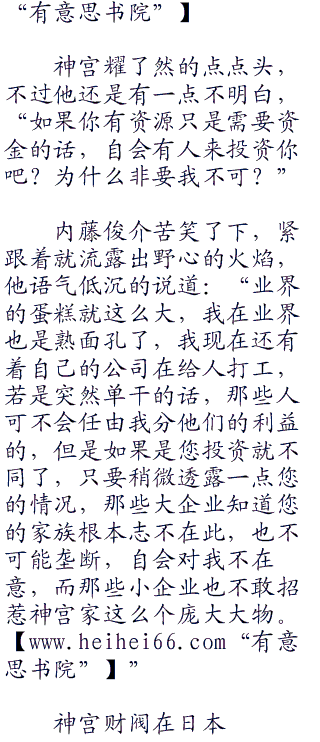 “有意思书院”】
神宫耀了然的点点头，
不过他还是有一点不明白，
“如果你有资源只是需要资
金的话，自会有人来投资你
吧？为什么非要我不可？”
内藤俊介苦笑了下，紧
跟着就流露出野心的火焰，
他语气低沉的说道：“业界
的蛋糕就这么大，我在业界
也是熟面孔了，我现在还有
着自己的公司在给人打工，
若是突然单干的话，那些人
可不会任由我分他们的利益
的，但是如果是您投资就不
同了，只要稍微透露一点您
的情况，那些大企业知道您
的家族根本志不在此，也不
可能垄断，自会对我不在
意，而那些小企业也不敢招
惹神宫家这么个庞大大物。
【www.heihei66.com“有意
思书院”】”
神宫财阀在日本